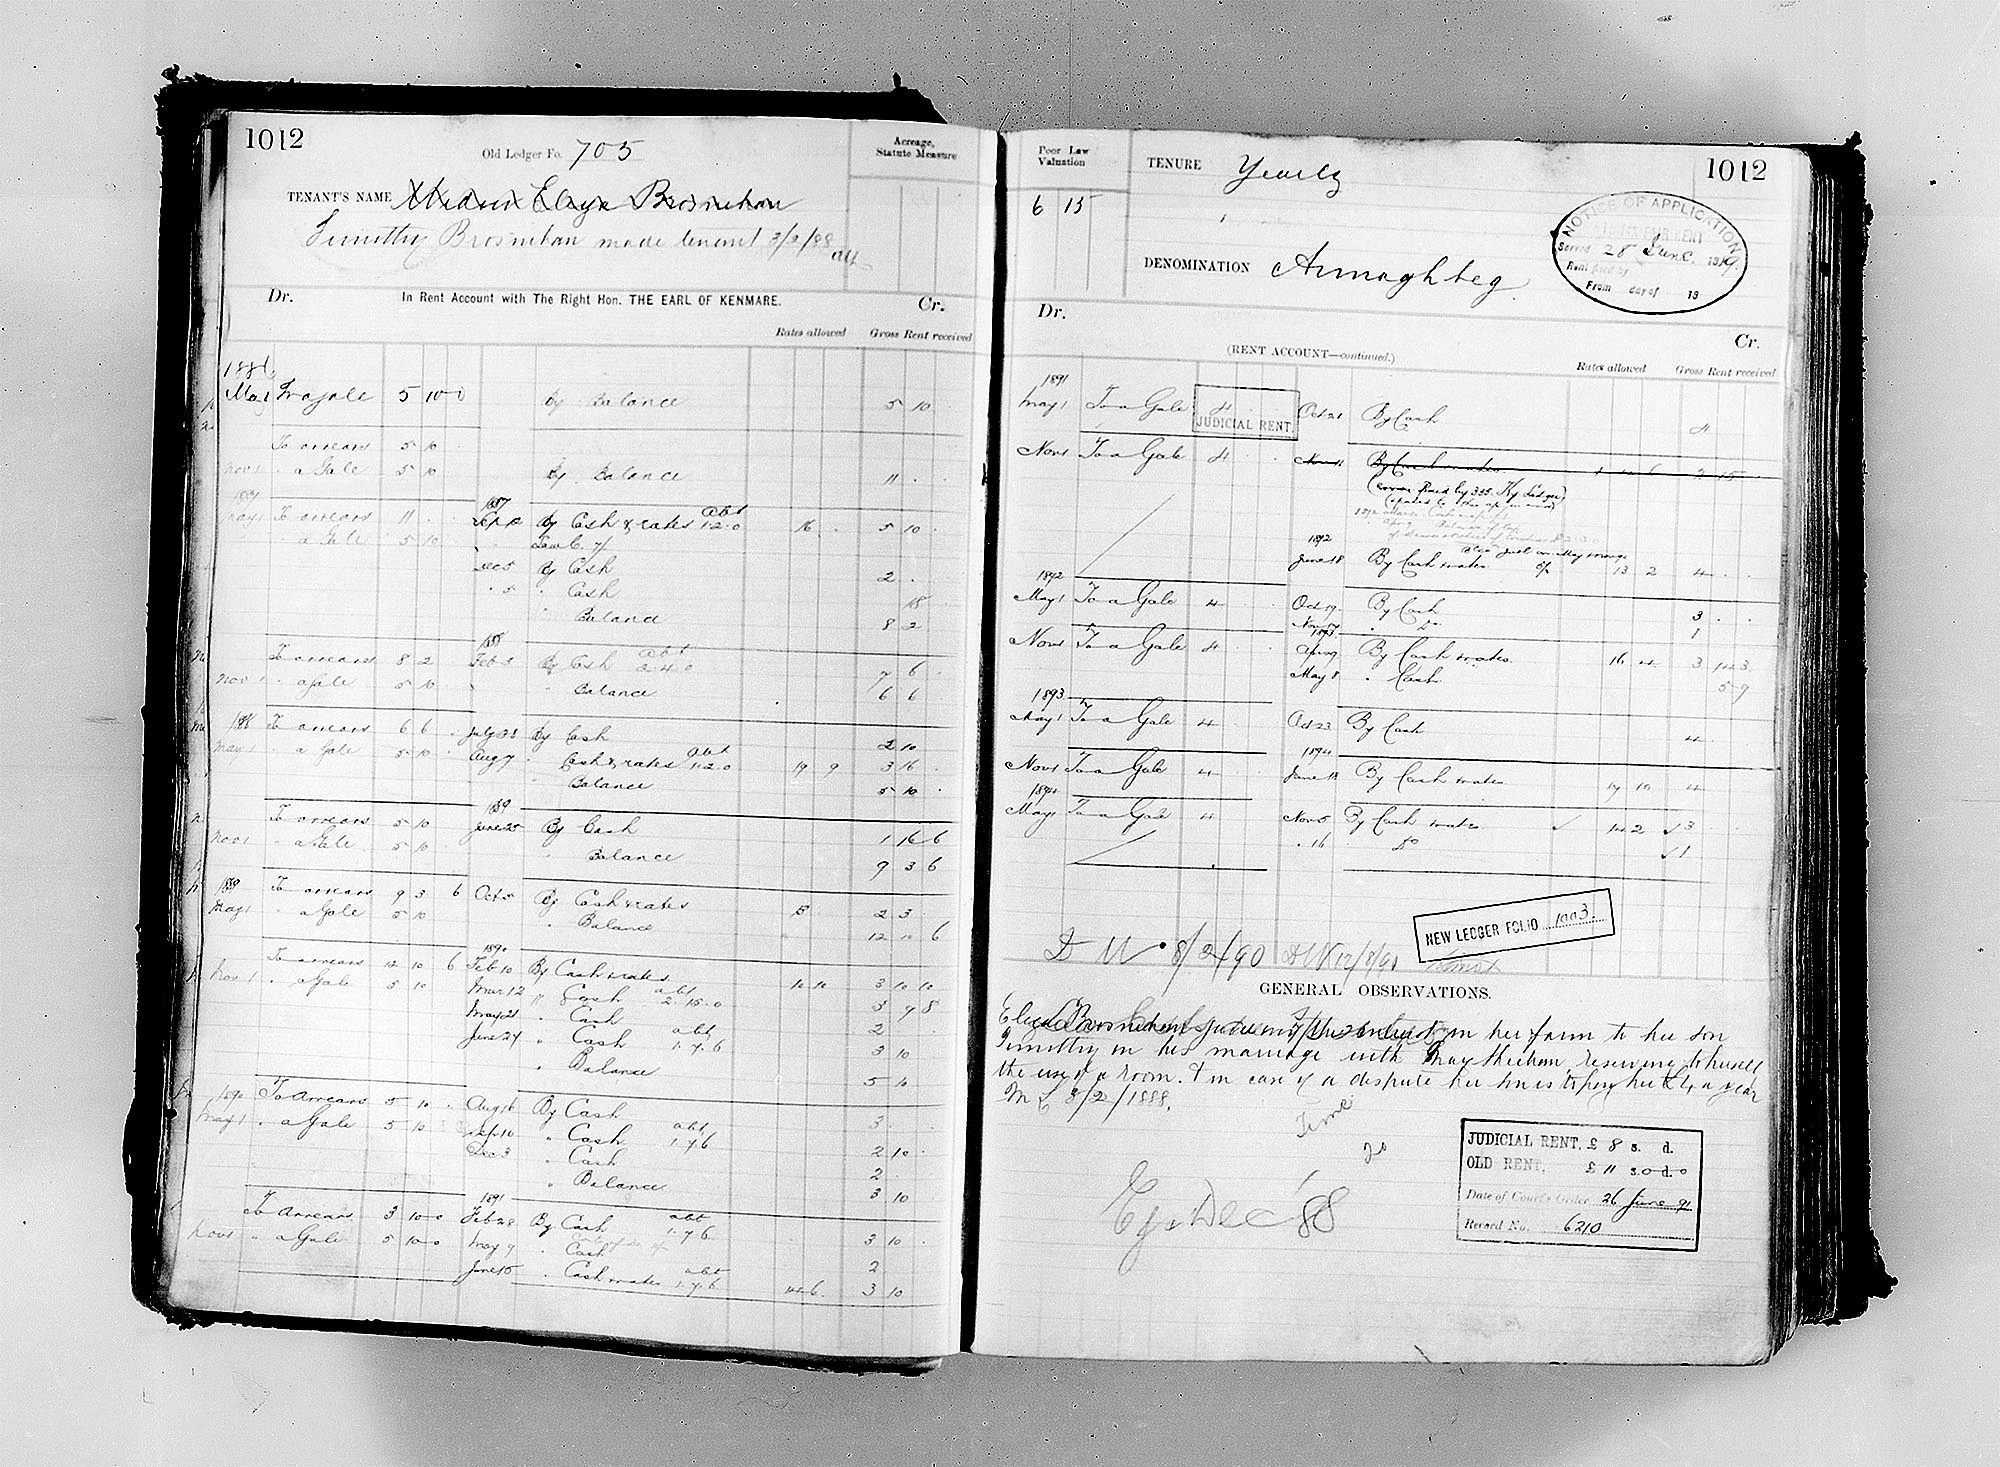 1012
Old Ledger Fo. 705
Acreage,
Statute Measure
TENANT'S NAME Brosnehan
Timothy Brosnehan made tenant 3/2/88
Dr. In Rent Account with The Right Hon. THE EARL OF KENMARE. Cr.
Rates allowed Gross Rent received
1886
May 1 To a gale 5 10 0 By Balance 5 10
To arrears 5 10
Nov 1 " a Gale 5 10 By Balance 11
1887
May 1 To arrears 11 By Cash & rates abt 1.2.0 16 5 10
" a Gale 5 10
Dec 5 By Cash 2
" 5 " Cash 18
Balance 8 2
1888
To arrears 8 2 Feb 3 By Cash abt 2.4.0 7 6
Nov 1 " a Gale 5 10 " Balance 6 6
1888 To arrears 6 6 July 23 By Cash 2 10
May 1 " a Gale 5 10 Aug 7 " Cash & rates abt 1.2.0 19 9 3 16
Balance 5 10
1889
To arrears 5 10 June 25 By Cash 1 16 6
Nov 1 " a Gale 5 10 " Balance 9 3 6
1889 To arrears 9 3 6 Oct 5 By Cash & rates 5 2 3
May 1 " a Gale 5 10 " Balance 12 10 6
1890
To arrears 12 10 6 Feb 10 By Cash & rates 10 10 3 10 10
Nov 1 " a Gale 5 10 Mar 12 " Cash abt 2.15.0 3 9 8
May 21 " Cash 2
June 24 " Cash abt 1.7.6 3 10
" Balance 5 10
1890 To Arrears 5 10 Aug 16 By Cash 3
May 1 " a Gale 5 10 Sep 10 " Cash abt 1.7.6 2 10
Dec 3 " Cash 2
" Balance 3 10
1891
To Arrears 3 10 0 Feb 28 By Cash abt 1.7.6 3 10
Nov 1 " a Gale 5 10 0 May 9 " Cash 2
June 15 " Cash & rates abt 1.7.6 14 6 3 10
Poor Law
Valuation
6 15
TENURE Yearly
1012
DENOMINATION Annaghbeg
NOTICE OF APPLICATION
TO FIX FAIR RENT
Served 28 June 1889
Rent paid by
From day of 18
Dr. Cr.
(RENT ACCOUNT—continued.)
Rates allowed Gross Rent received
1891
May 1 To a Gale 4 Oct 21 By Cash 4
JUDICIAL RENT.
Nov 1 To a Gale 4 Nov 11 By Cash & rates 1 4 6 2 15
1892
June 18 By Cash & rates 13 2 4
1892
May 1 To a Gale 4 Oct 19 By Cash 3
Nov 17 " Do 1
1893
Nov 1 To a Gale 4 Apr 9 By Cash & rates 16 4 3 14 3
May 8 " Cash 5 9
1893
May 1 To a Gale 4 Oct 23 By Cash 4
1894
Nov 1 To a Gale 4 June 13 By Cash & rates 17 10 4
1894
May 1 To a Gale 4 Nov 5 By Cash & rates 14 2 3
" 16 Do 1
NEW LEDGER FOLIO 1003.
8/2/90 12/8/91
GENERAL OBSERVATIONS.
Eliza Brosnehan her interest in her farm to her son
Timothy on his marriage with May Sheehan, reserving to herself
the use of a room. & in case of a dispute her son is to pay her £4 a year
8/2/1888.
Time
JUDICIAL RENT, £ 8 s. d.
OLD RENT, £ 11 s. 0 d. 0
Date of Court's Order, 26 June 91
Record No. 6210
Dec '88